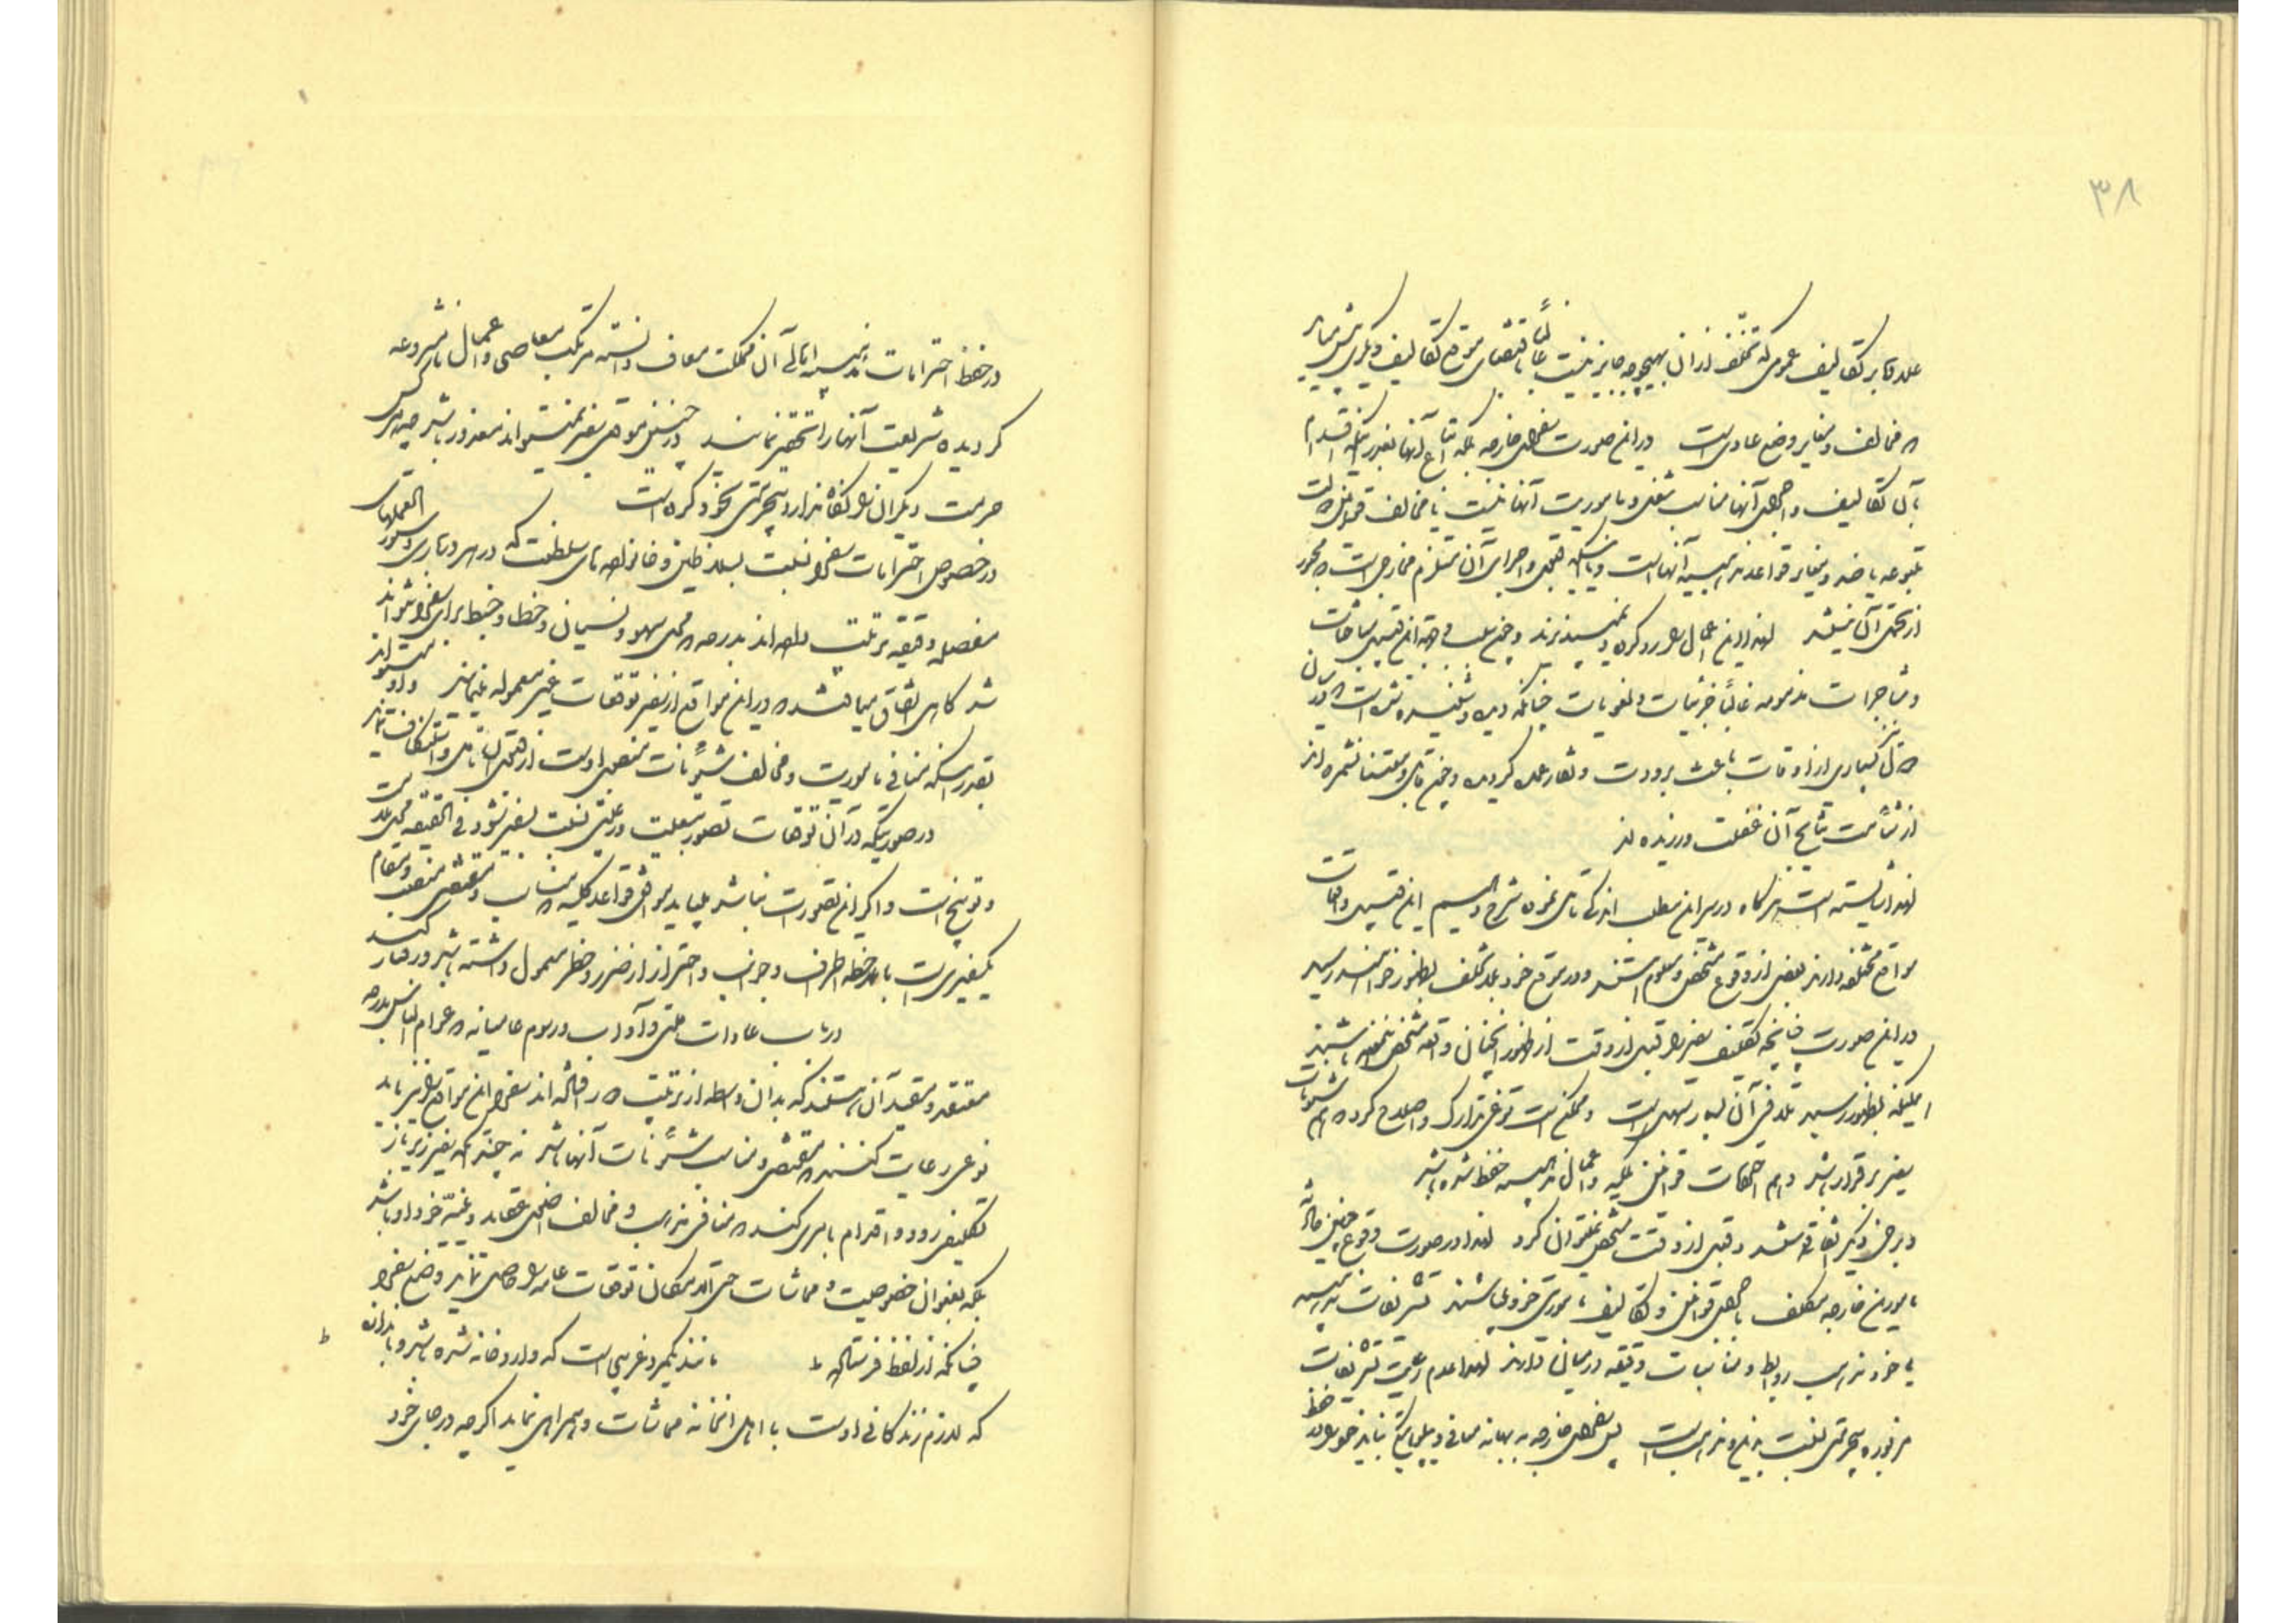 ۳۸
علاوه بر تکالیف عمومی که تخلف از آن بهیچوجه جایز نیست غالباً باقتضای موقع تکالیف دیگری پیش میآید
که مخالف و مغایر وضع عادی است در این صورت سفرای خارجه بلکه اتباع آنها بقدریکه اقدام
بآن تکالیف و اجرای آنها مناسب شغل و مأموریت آنها نیست یا مخالف قوانین دولت
متبوعه یا ضد و مغایر قواعد مذهبیه آنها است و یا اینکه قبول و اجرای آن مستلزم مخارجی است که مجبور
از تحمل آن نیستند لهذا این اعمال را رد کرده و نمی پذیرند و
و مشاجرات مذمومه غالباً جزئیات و لغویات چنانکه دیده و شنیده شده است
در بسیاری از اوقات باعث برودت و نقار کردیده و
از شأمت نتایج آن غفلت ورزیده اند
لهذا شایسته است هرگاه در این مطلب اندکی تأمل نموده شرح دهیم این قبیل واقعات
مواقع مختلفه دارند بعضی از وقوع مشخص و معلوم هستند و در موقع خود بلا تخلف بظهور خواهند رسید
در این صورت چنانچه تکلیف سفیر را قبل از وقت از ظهور آنچنان واقعه مشخص ننموده باشند
اینکه بظهور رسید تلافی آن بسیار سهل است و ممکن است نوعی تدارک و اصلاح کرد که هم شئونات
سفیر برقرار باشد و هم احکامات قوانین ملکیه و اعمال مذهبیه حفظ شده باشد
و برخی دیگر اتفاقی هستند و قبل از وقت مشخص نمیتوان کرد لهذا در صورت وقوع چنین حادثه
مأمورین خارجه مکلف باجرای قوانین و تکالیف مأموریتی خود میباشند تشریفات مذهبیه
با خود مذهب روابط و مناسبات دقیقه در میان دارند لهذا عدم رعایت تشریفات
مزبوره بیحرمتی نسبت بدین و مذهب است پس سفرای خارجه به بهانه منافی دیپلماتیکی نباید خود را از حفظ
در حفظ احترامات مذهبیه اهالی آن مملکت معاف دانسته مرتکب معاصی و اعمال نامشروعه
کردیده شریعت آنها را تحقیر نمایند در چنین موقعی سفیر نمیتواند معذور باشد چه هر کس
حرمت دیگران را نگاه ندارد بیحرمتی بخود کرده است
در خصوص احترامات سفرا نسبت بسلاطین و خانواده های سلطنت که در هر درباری دستور العملهای
مفصله و دقیقه ترتیب داده اند بدرجه که محل سهو و نسیان و خطا و خبط برای سفرا نتواند
شد گاهی اتفاق میافتد که در این مواقع از سفیر توقعات غیر معموله مینمایند و او میتواند
بقدریکه منافی مأموریت و مخالف شئونات منصبی اوست از قبول آن تأمل و استنکاف نماید
در صورتیکه در آن توقعات تصور تبعیت و رعیتی نسبت بسفیر نشود فی الحقیقه محل ملامت
و توبیخ است و اگر این تصورات نباشد میباید موافق قواعد کلیه که مناسب و مقتضی منصب و مقام
یکنفیری است با ملاحظه اطراف و جوانب و احتراز از ضرر و خطر معمول داشته باشد و رفتار کند
در باب عادات ملتی و آداب و رسوم عامیانه که عوام الناس بدرجه
معتقد و مقید آن هستند که بدان واسطه از تربیت دور افتاده اند سفرا در این مواقع نیز باید
نوعی رعایت کنند که مقتضی و مناسب شئونات آنها باشد نه چندانکه سفیر زیر بار
تکلیفی رود و اقدام بامری کند که منافی مذهب و مخالف اصلی عقاید دینیه خود او باشد
بلکه بعنوان خصوصیت و مماشات حتی الامکان توقعات عامه را حاصل نماید وضع سفرا
چنانکه از لفظ فرستاده مانند یکمرد غریبی است که وارد خانه شده باشد و
که لازم زندگانی اوست با اهل آنخانه مماشات و همراهی نماید اگر چه در جای خود